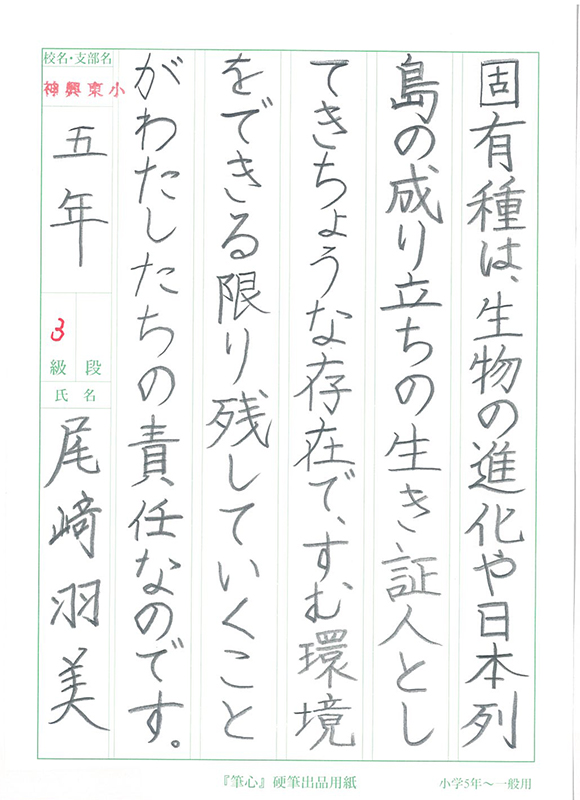 固有種は、生物の進化や日本列
島の成り立ちの生き証人とし
てきちょうな存在で、すむ環境
をできる限り残していくこと
がわたしたちの責任なのです。
校名・支部名
神興東小
五年
3
級 段
氏 名
尾﨑羽美
『筆心』硬筆出品用紙
小学5年〜一般用